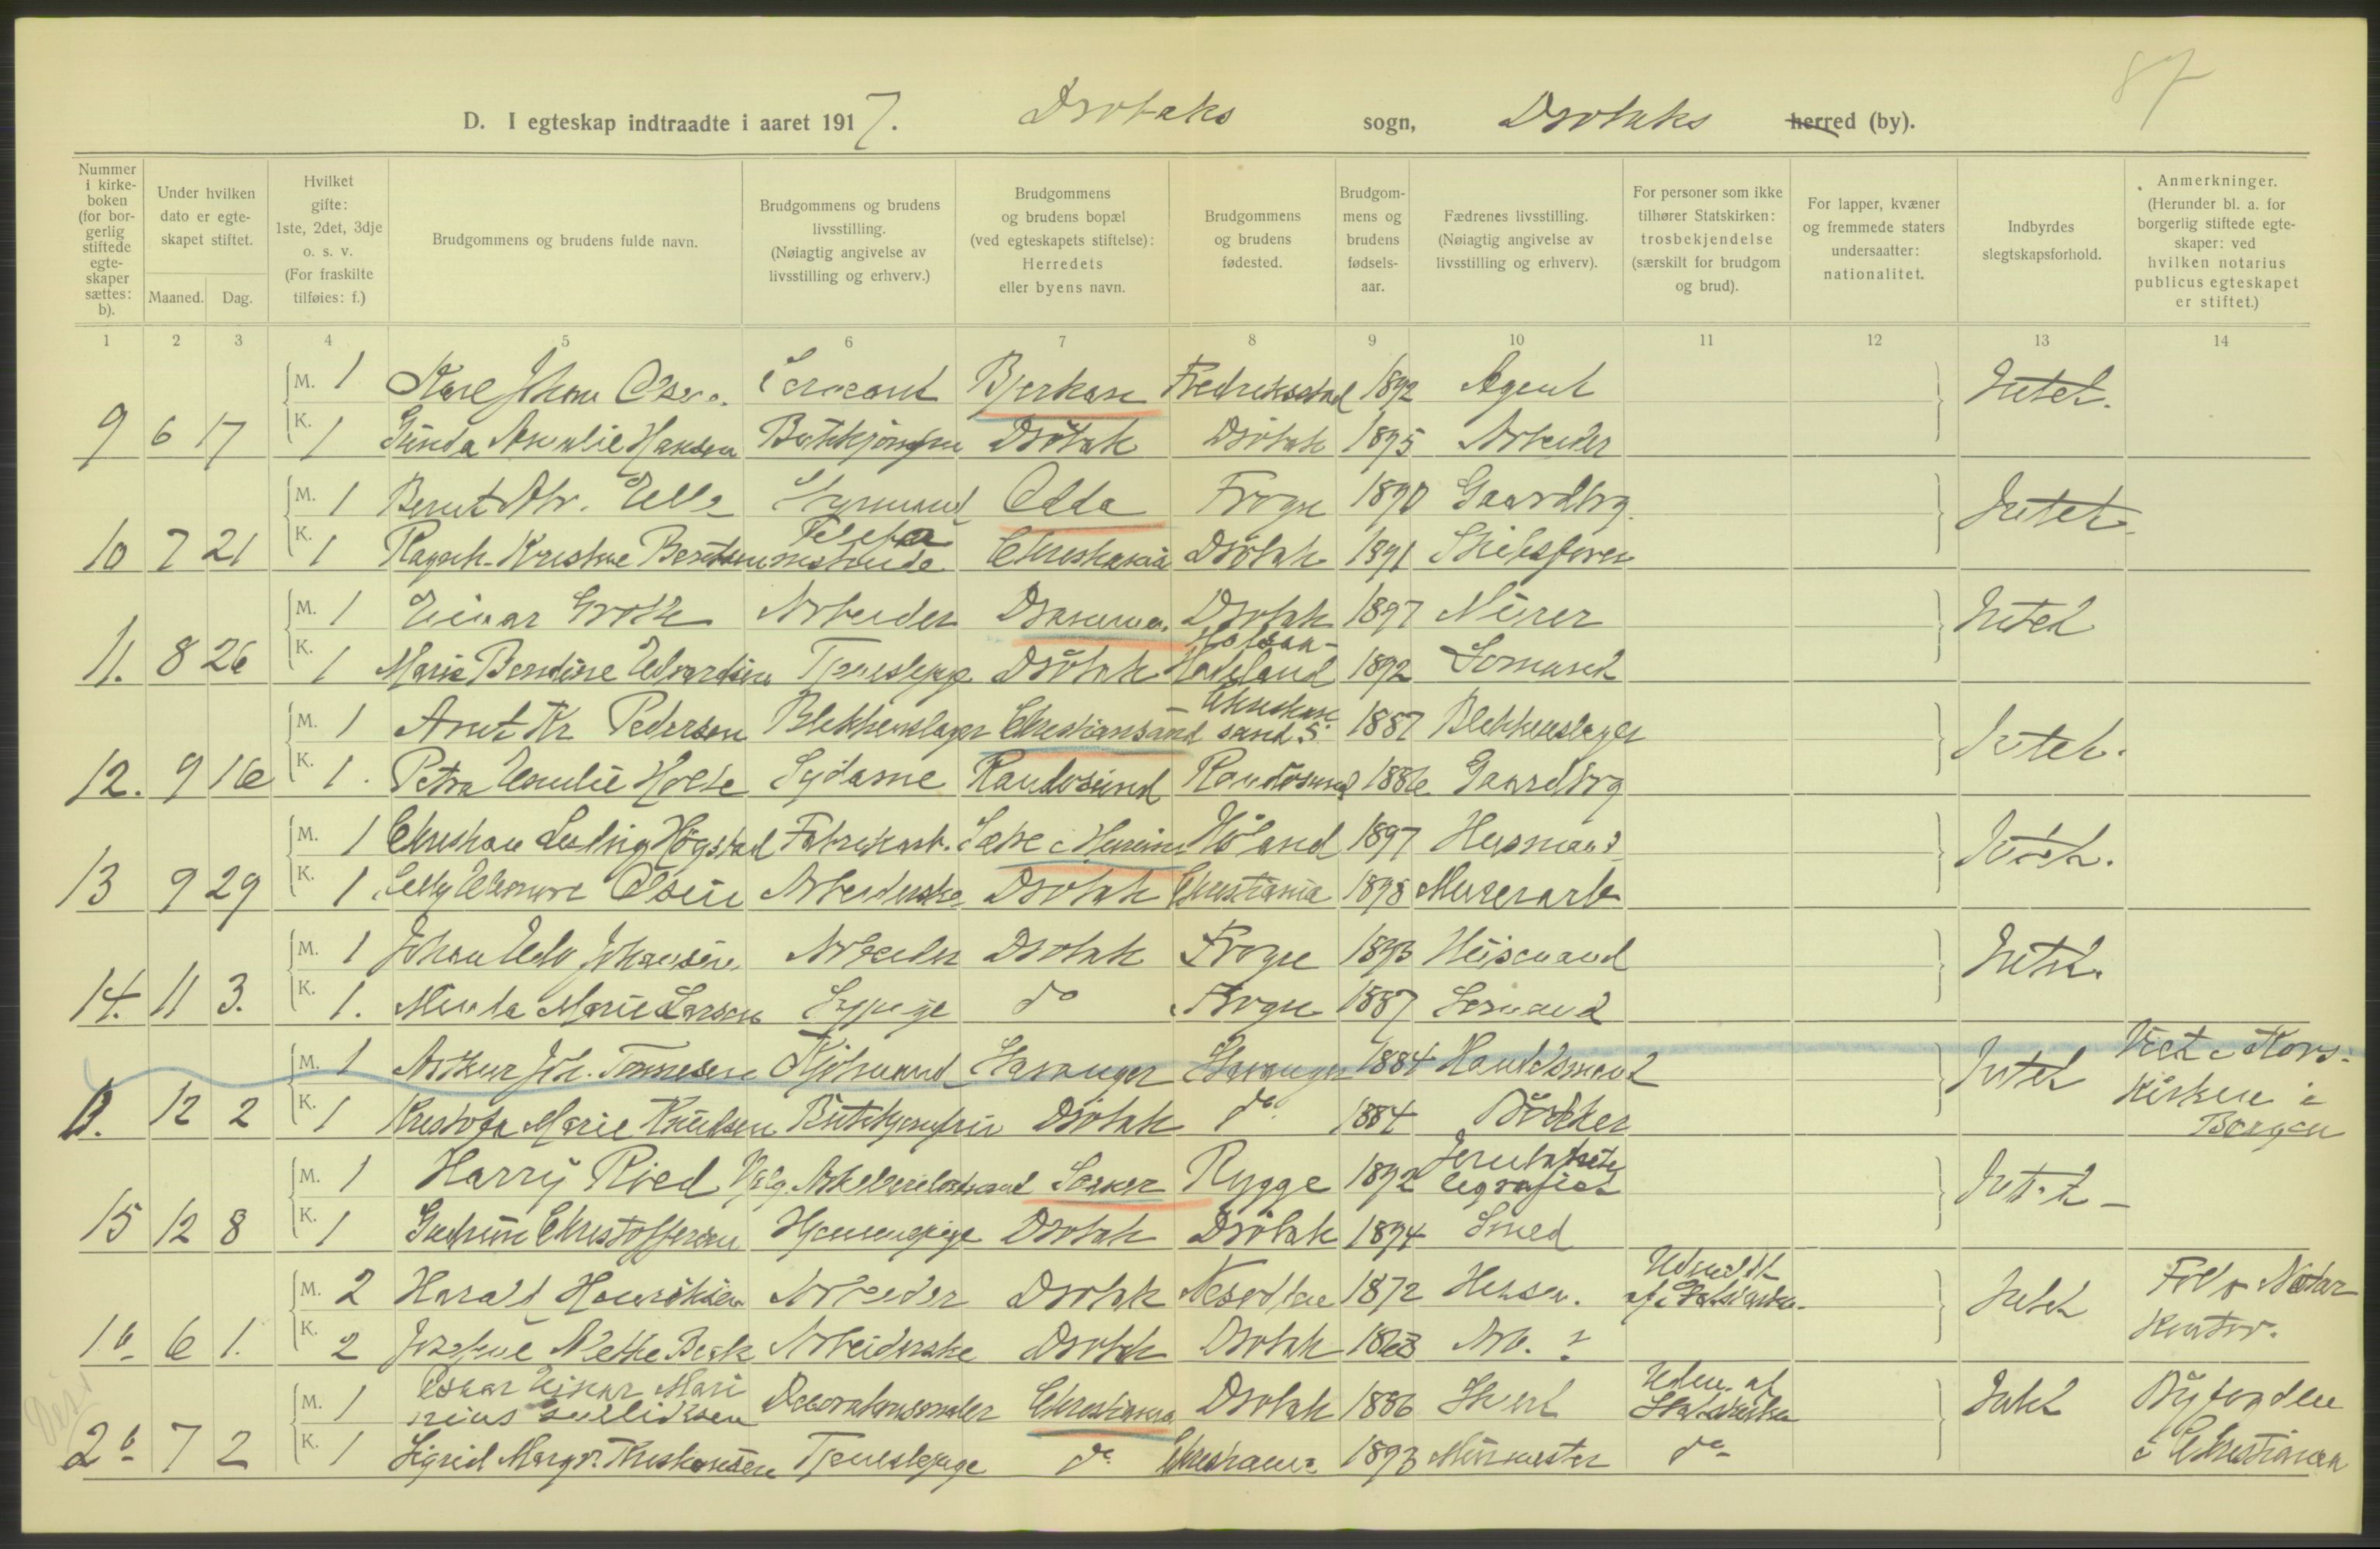 87
D. I egteskap indtraadte i aaret 1917. Drøbaks sogn, Drøbaks herred (by).
Nummer i kirkeboken (for borgerlig stiftede egteskaper sættes: b).
Under hvilken dato er egteskapet stiftet.
Maaned. Dag.
Hvilket gifte: 1ste, 2det, 3dje o. s. v. (For fraskilte tilføies: f.)
Brudgommens og brudens fulde navn.
Brudgommens og brudens livsstilling. (Nøiagtig angivelse av livsstilling og erhverv.)
Brudgommens og brudens bopæl (ved egteskapets stiftelse): Herredets eller byens navn.
Brudgommens og brudens fødested.
Brudgommens og brudens fødselsaar.
Fædrenes livsstilling. (Nøiagtig angivelse av livsstilling og erhverv).
For personer som ikke tilhører Statskirken: trosbekjendelse (særskilt for brudgom og brud).
For lapper, kvæner og fremmede staters undersaatter: nationalitet.
Indbyrdes slegtskapsforhold.
Anmerkninger. (Herunder bl. a. for borgerlig stiftede egteskaper: ved hvilken notarius publicus egteskapet er stiftet.)
1 2 3 4 5 6 7 8 9 10 11 12 13 14
M. 1 Karl Johan Olsen. Sersjant Fredriksstad 1892 Agent Intet.
9 6 17 K. 1 Gunda Amalie Hansen Drøbak Drøbak 1895 Arbeider
M. 1 Bernt Styrmand Odda Frogn 1890 Gaardbrg. Intet
10 7 21 K. 1 Ragnh. Kristine Berntsen Christiania Drøbak 1891 Skibsfører
M. 1 Einar Groth Arbeider Drammen. Drøbak 1897 Murer Intet
11. 8 26 K. 1 Marie Bendine Edvardsen Tjenestepige Drøbak 1892 Sømand
M. 1 Arnt Kr Pedersen Blikkenslager Christiansand Christiansand S. 1887 Blikkenslager Intet.
12. 9 16 K. 1. Petra Emilie Holte Sydame Randøsund Randøsund 1886 Gaardbrg
M. 1 Christian Ludvig Høgstad Fabrikarb. Høland 1897 Husmand Intet.
13 9 29 K. 1 Olsen Arbeiderske Drøbak Christiania 1898 Murerarb
M. 1 Johan Johansen Arbeider Drøbak Frogn 1893 Huismand Intet.
14. 11 3. K. 1. Minda Marie Larsen Sypige do Frogn 1887 Sømand
M. 1 Arthur Joh. Tønnesen Stavanger Stavanger 1884 Handelsmand Intet Viet i Kors-
12 2 K. 1 Kristofa Marie Knudsen Butikjomfru Drøbak do 1884 Bødker kirken i
Bergen
M. 1 Harry Ried Aker Rygge 1892 Intet
15 12 8 K. 1 Gudrun Christoffersen Hjemmepige Drøbak Drøbak 1894 Smed
M. 2 Harald Henriksen Arbeider Drøbak Nesodden 1872 Udmeldt af Statskirken. Intet Follo Notar
1b 6 1. K. 2 Josefine Alette Beck Arbeiderske Drøbak Drøbak 1863 Arb. ? Kontor.
M. 1 Oskar Einar Marinius Gulliksen Dekorationsmaler Christiania Drøbak 1886 Udm. af Statskirken Intet Byfogden
2b 7 2 K. 1 Sigrid Margr. Kristiansen Tjenestepige do Christiania 1893 Murmester do i Christiania